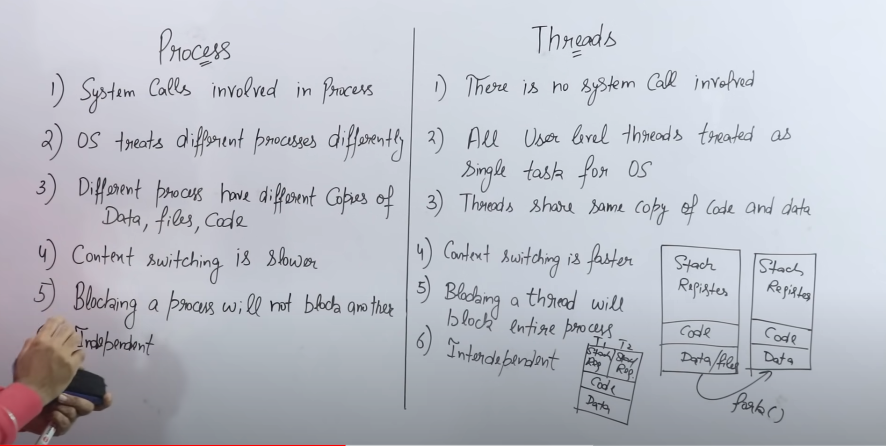 Process
1) System Calls involved in Process
2) OS treats different processes differently
3) Different process have different Copies of
Data, files, Code
4) Content switching is slower
5) Blocking a process will not block another
Independent
Threads
1) There is no system Call involved
2) All User level threads treated as
single task for OS
3) Threads share same copy of code and data
4) Content switching is faster
5) Blocking a thread will
block entire process
6) Interdependent
T1 T2
Stack Stack
Reg Reg.
Code
Data
Stack
Register
Code
Data/files
Stack
Register
Code
Data
fork()